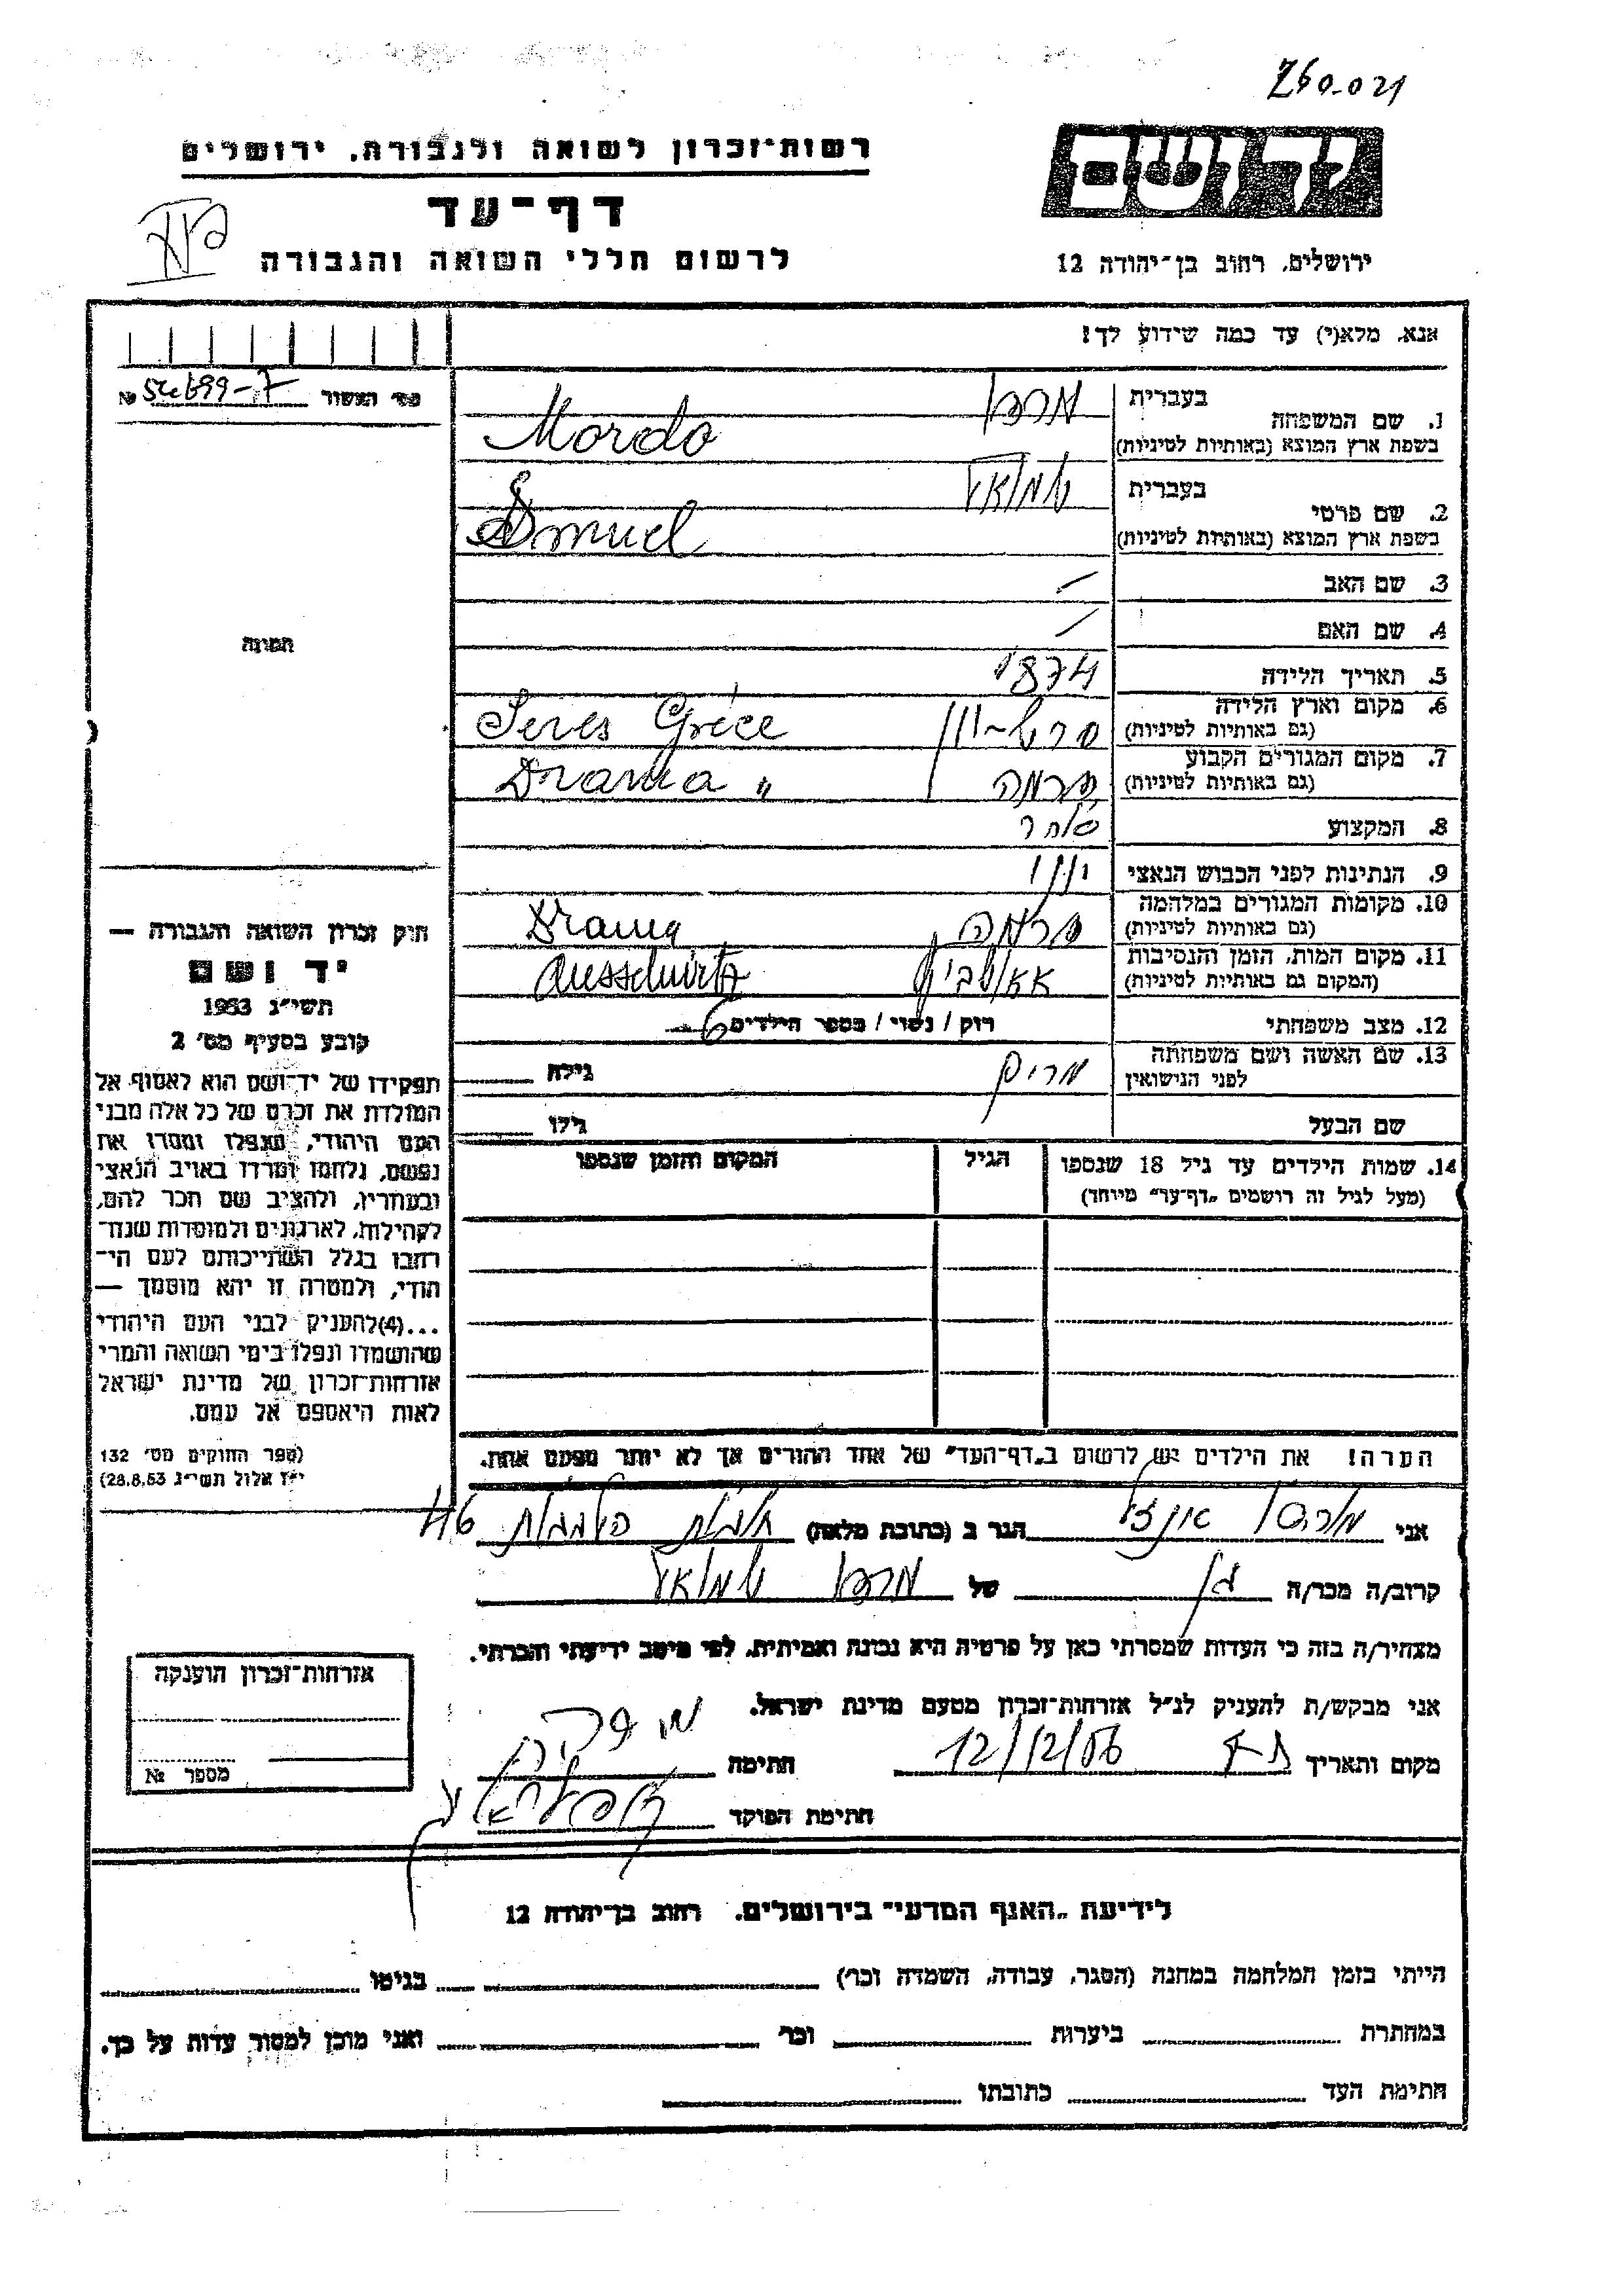 260.021
רשות־זכרון לשואה ולגבורה, ירושלים
יד ושם
דף־עד
לרשום חללי השואה והגבורה
ירושלים, רחוב בן־יהודה 12
אנא, מלא(י) עד כמה שידוע לך!
מס' האשור №
1. שם המשפחה
בעברית מרדו
בשפת ארץ המוצא (באותיות לטיניות) Mordo
2. שם פרטי
בעברית שמואל
בשפת ארץ המוצא (באותיות לטיניות) Smuel
3. שם האב —
4. שם האם —
5. תאריך הלידה 1874
6. מקום וארץ הלידה
(גם באותיות לטיניות) סרס - יוון Seres Gréce
7. מקום המגורים הקבוע
(גם באותיות לטיניות) דרמה Drama "
8. המקצוע סוחר
9. הנתינות לפני הכבוש הנאצי יווני
10. מקומות המגורים במלחמה
(גם באותיות לטיניות) דרמה Drama
11. מקום המות, הזמן והנסיבות
(המקום גם באותיות לטיניות) Ausschwitz
12. מצב משפחתי רווק / נשוי / מספר הילדים 6
13. שם האשה ושם משפחתה
לפני הנישואין מרים גילה
שם הבעל גילו
14. שמות הילדים עד גיל 18 שנספו הגיל המקום והזמן שנספו
(מעל לגיל זה רושמים „דף־עד" מיוחד)
הערה! את הילדים יש לרשום ב„דף־העד" של אחד ההורים אך לא יותר מפעם אחת.
תמונה
חוק זכרון השואה והגבורה —
יד ושם
תשי"ג 1953
קובע בסעיף מס' 2
תפקידו של יד־ושם הוא לאסוף אל
המולדת את זכרם של כל אלה מבני
העם היהודי, שנפלו ומסרו את
נפשם, נלחמו ומרדו באויב הנאצי
ובעוזריו, ולהציב שם וזכר להם,
לקהילות, לארגונים ולמוסדות שנח־
רבו בגלל השתייכותם לעם הי־
הודי, ולמטרה זו יהא מוסמך —
...(4)להעניק לבני העם היהודי
שהושמדו ונפלו בימי השואה והמרי
אזרחות־זכרון של מדינת ישראל
לאות היאספם אל עמם.
(ספר החוקים מס' 132
י"ז אלול תשי"ג 28.8.53)
אני מרדו הגר ב (כתובת מלאה) 46
קרוב/ה מכר/ה בן של מרדו שמואל
מצהיר/ה בזה כי העדות שמסרתי כאן על פרטיה היא נכונה ואמיתית, לפי מיטב ידיעתי והכרתי.
אני מבקש/ת להעניק לנ"ל אזרחות־זכרון מטעם מדינת ישראל.
מקום ותאריך ת"א 12/12/56 חתימה
חתימת הפוקד
אזרחות־זכרון הוענקה
מספר №
לידיעת „האגף המדעי" בירושלים, רחוב בן־יהודה 12
הייתי בזמן המלחמה במחנה (הסגר, עבודה, השמדה וכו') בגיטו
במחתרת ביערות וכו' ואני מוכן למסור עדות על כך.
חתימת העד כתובתו